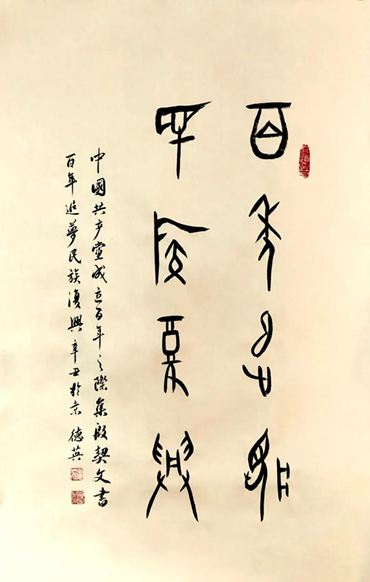 百年追夢
民族復興
中國共产黨成立百年之際集殷契文書
百年追夢民族復興辛丑於京 德英